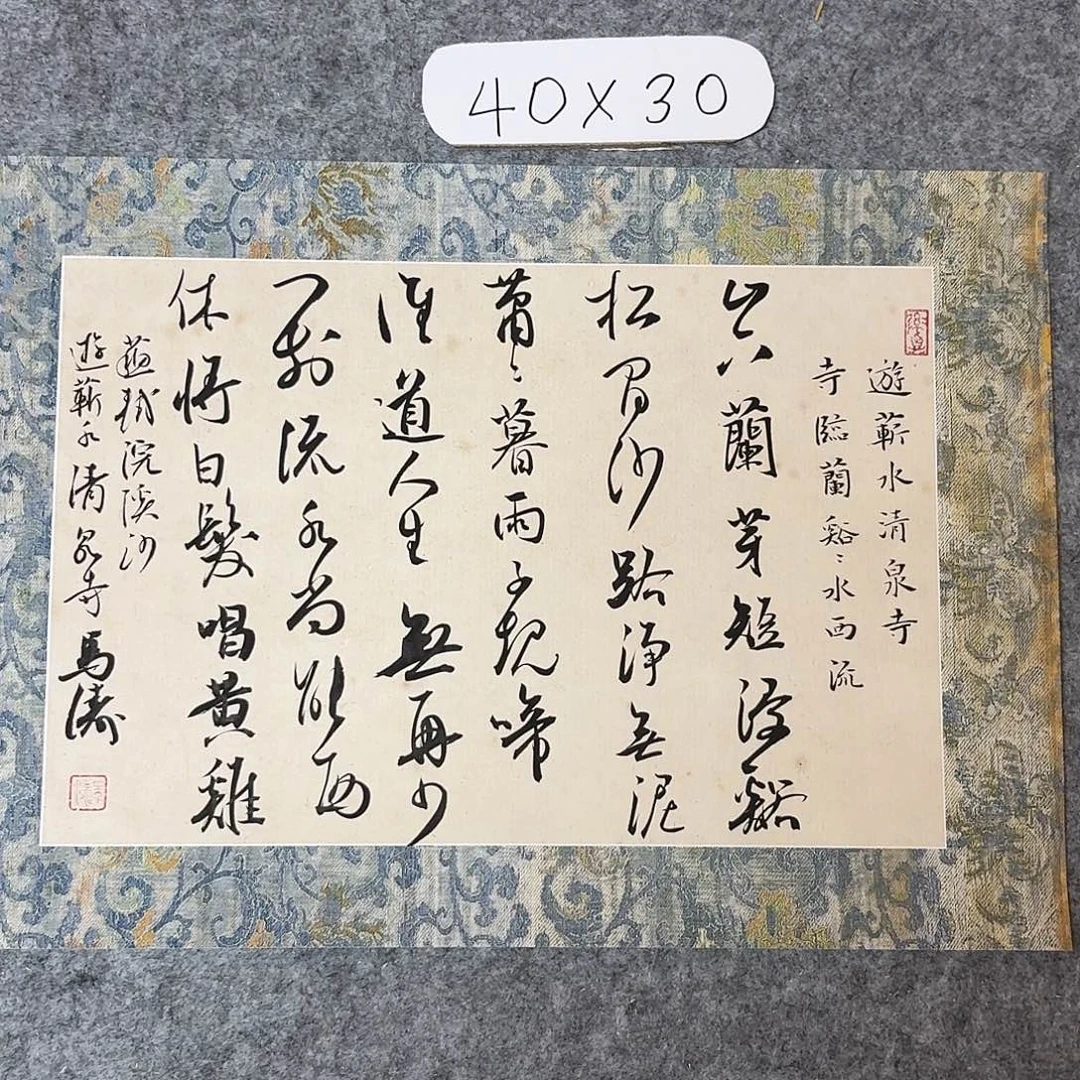 40X30
遊蘄水清泉寺
寺臨蘭谿〻水西流
山下蘭芽短浸谿
松間沙路淨無泥
蕭〻暮雨子規啼
誰道人生無再少
門前流水尚能西
休將白髮唱黃雞
蘇軾浣溪沙
遊蘄水清泉寺 馬濤